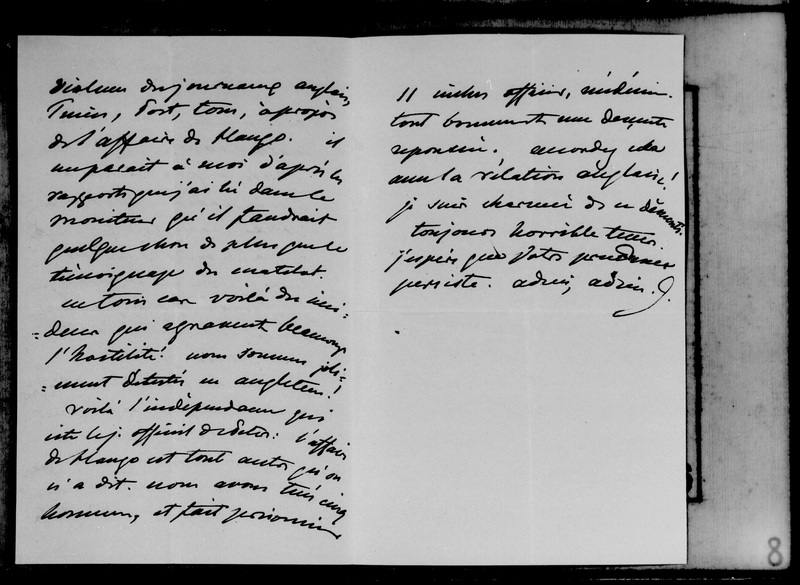 violence des journaux anglais,
Times, Post, tous, à propos
de l'affaire de Hango. il
me parait à moi d'après les
rapports que j'ai lu dans le
moniteur qu'il faudrait
quelque chose de plus que le
témoignage du matelot.
en tous cas voilà des inci-
=dens qui aggravent beaucoup
l'hostilité! nous sommes joli-
=ment détestés en angleterre!
voilà l'indépendance qui
cite le j. officiel de : l'affaire
de Hango est tout autre qu'on
n'a dit. nous avons tués cinq
hommes, et fait prisonniers
11 inclus officier, médecin.
tout bonnement une descente
repoussée. accordez cela
avec la rélation anglaise!
je suis charmée de ce démenti.
toujours horrible tems.
j'espère que votre prudence
persiste. adieu, adieu.
8